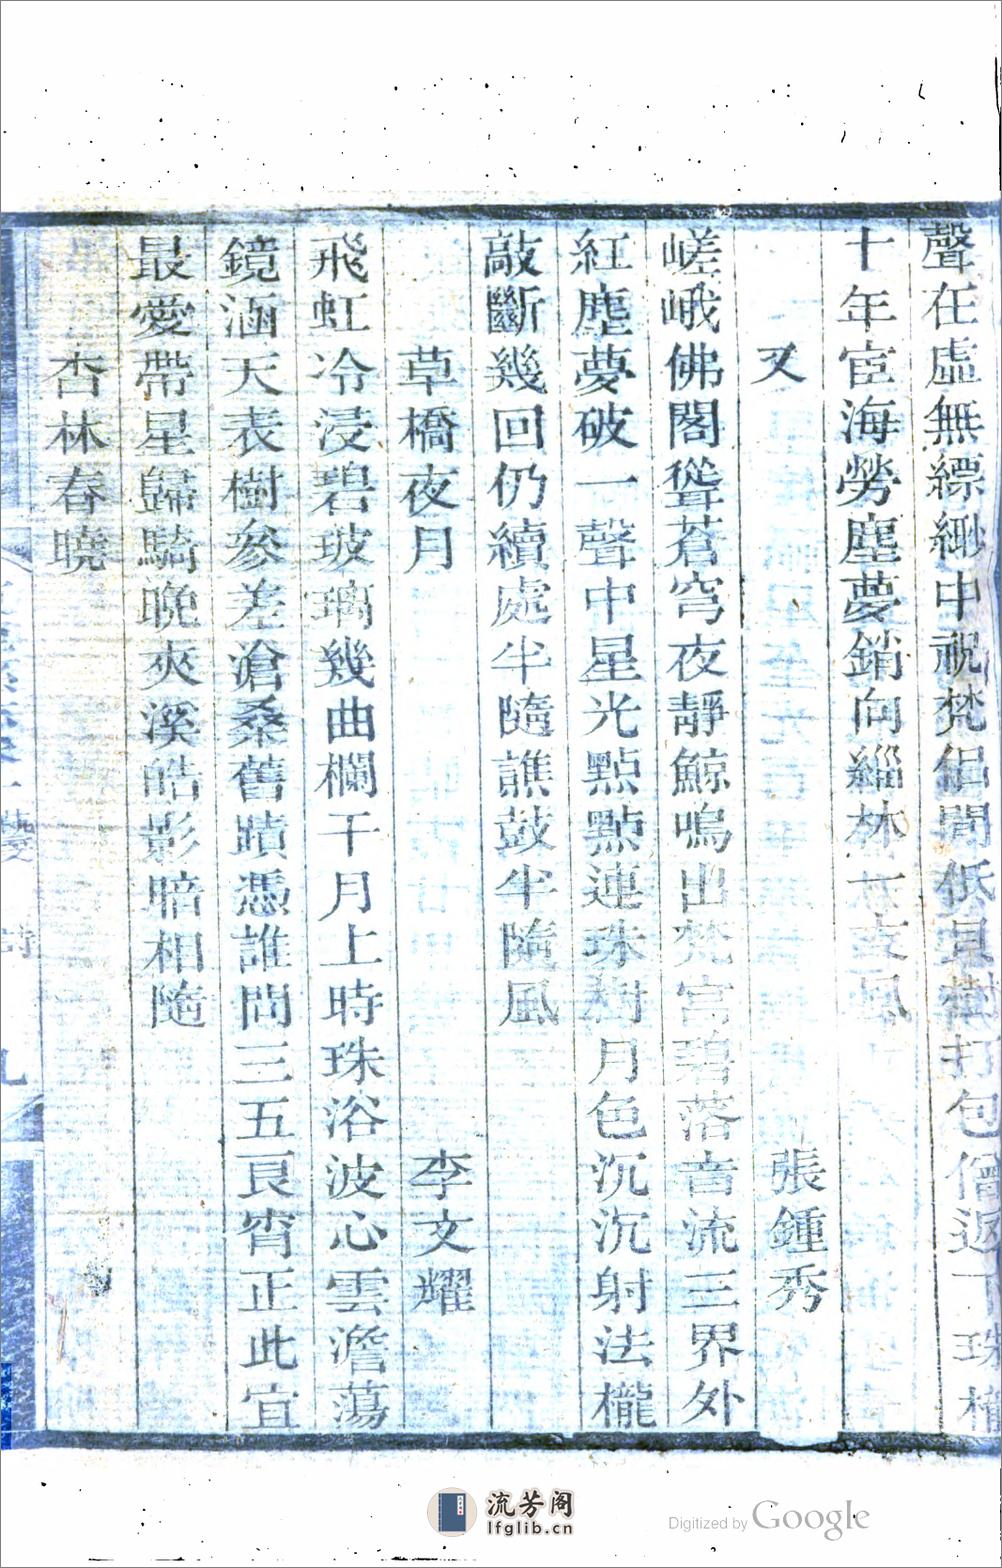 聲在虛無縹緲中祝梵侶間低景樹打包僧返下珠櫳
十年宦海勞塵夢銷向緇林一支風
又 張鍾秀
嵯峨佛閣聳蒼穹夜靜鯨鳴出梵宮碧落音流三界外
紅塵夢破一聲中星光點點連珠樹月色沉沉射法櫳
敲斷幾回仍續處半隨譙鼓半隨風
草橋夜月 李文耀
飛虹冷浸碧玻璃幾曲欄干月上時珠浴波心雲澹蕩
鏡涵天表樹參差滄桑舊蹟憑誰問三五良宵正此宜
最愛帶星歸騎晚夾溪皓影暗相隨
杏林春曉
藝 詩
九
流芳阁
lfglib.cn
Digitized by Google